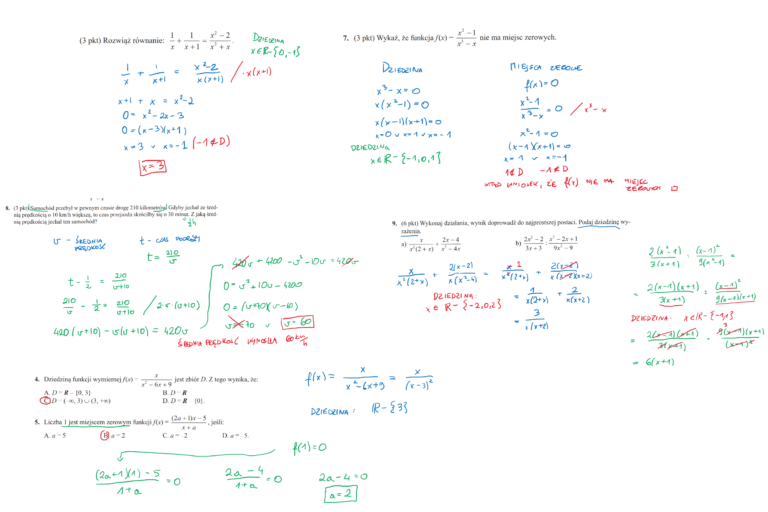 (3 pkt) Rozwiąż równanie: 1/x + 1/(x+1) = (x²−2)/(x²+x).
DZIEDZINA
x∈R−{0,−1}
1/x + 1/(x+1) = (x²−2)/(x(x+1)) /·x(x+1)
x+1 + x = x²−2
0 = x²−2x−3
0 = (x−3)(x+1)
x=3 ∨ x=−1 (−1∉D)
x=3
7. (3 pkt) Wykaż, że funkcja f(x) = (x²−1)/(x³−x) nie ma miejsc zerowych.
DZIEDZINA
x³−x=0
x(x²−1)=0
x(x−1)(x+1)=0
x=0 ∨ x=1 ∨ x=−1
DZIEDZINA
x∈R−{−1,0,1}
MIEJSCA ZEROWE
f(x)=0
(x²−1)/(x³−x) = 0 /x³−x
x²−1=0
(x−1)(x+1)=0
x=1 ∨ x=−1
1∉D −1∉D
WNIOSEK, ŻE f(x) NIE MA MIEJSC
ZEROWYCH □
8. (3 pkt) Samochód przebył w pewnym czasie drogę 210 kilometrów. Gdyby jechał ze śred-
nią prędkością o 10 km/h większą, to czas przejazdu skróciłby się o 30 minut. Z jaką śred-
nią prędkością jechał ten samochód?
½h
v − ŚREDNIA
PRĘDKOŚĆ
t − CZAS PODRÓŻY
t = 210/v
t − 1/2 = 210/(v+10)
210/v − 1/2 = 210/(v+10) /2·v(v+10)
420(v+10) − v(v+10) = 420v
420v + 4200 − v² − 10v = 420v
0 = v² + 10v − 4200
0 = (v+70)(v−60)
v=−70 ∨ v=60
ŚREDNIA PRĘDKOŚĆ WYNOSIŁA 60 km/h
9. (6 pkt) Wykonaj działania, wynik doprowadź do najprostszej postaci. Podaj dziedzinę wy-
rażenia.
a) x/(x²(2+x)) + (2x−4)/(x³−4x)
b) (2x²−2)/(3x+3) : (x²−2x+1)/(9x²−9)
x/(x²(2+x)) + 2(x−2)/(x(x²−4)) = x 1/(x²(2+x)) + 2(x−2)/(x(x−2)(x+2))
DZIEDZINA
x∈R−{−2,0,2}
= 1/(x(2+x)) + 2/(x(x+2))
= 3/(x(x+2))
2(x²−1)/(3(x+1)) : (x−1)²/(9(x²−1)) =
= 2(x−1)(x+1)/(3(x+1)) : (x−1)²/(9(x−1)(x+1))
DZIEDZINA: x∈R−{−1,1}
= 2(x−1)(x+1)/(3(x+1)) · 9(x−1)(x+1)/(x−1)² 3
= 6(x+1)
4. Dziedziną funkcji wymiernej f(x) = x/(x²−6x+9) jest zbiór D. Z tego wynika, że:
A. D = R − {0, 3}
B. D = R
C. D = (−∞, 3) ∪ (3, +∞)
D. D = R − {0}.
f(x) = x/(x²−6x+9) = x/(x−3)²
DZIEDZINA: R−{3}
5. Liczba 1 jest miejscem zerowym funkcji f(x) = ((2a+1)x−5)/(x+a), jeśli:
A. a = 5
B. a = 2
C. a = −2
D. a = −5.
f(1)=0
((2a+1)(1)−5)/(1+a) = 0
(2a−4)/(1+a) = 0
2a−4=0
a=2